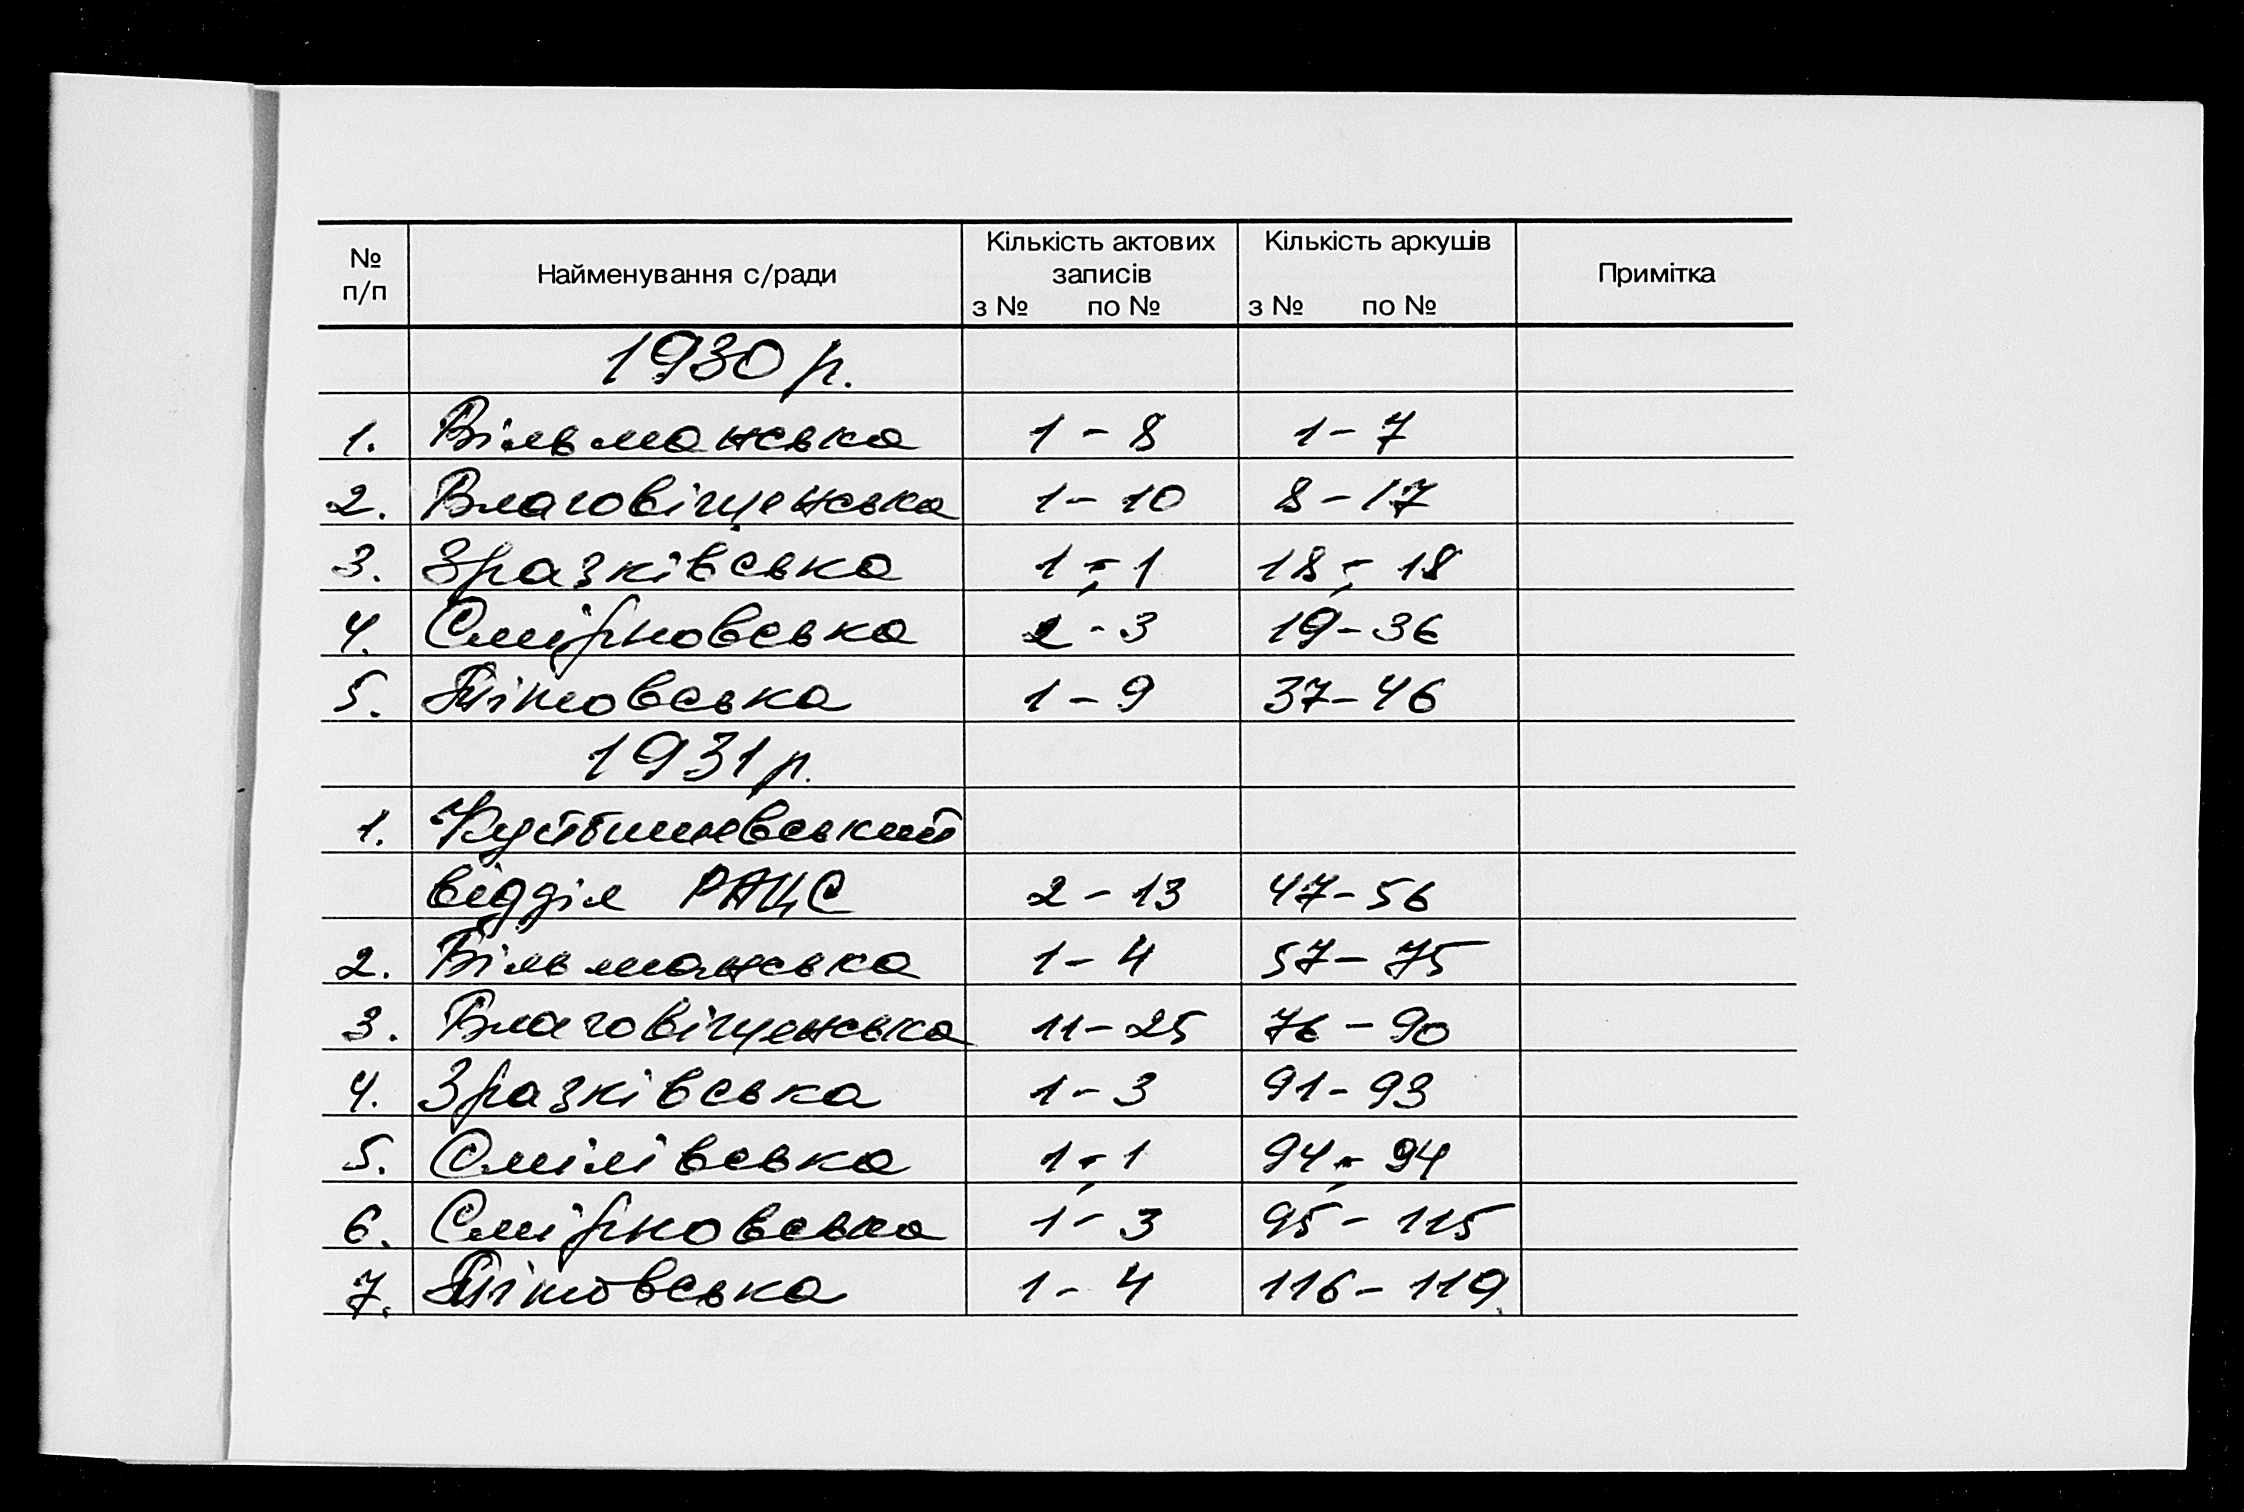 № п/п Найменування с/ради Кількість актових записів з № по № Кількість аркушів з № по № Примітка
1930 р.
1. Вільманська 1 - 8 1 - 7
2. Благовіщенська 1 - 10 8 - 17
3. Зразківська 1 - 1 18 - 18
4. Смірновська 2 - 3 19 - 36
5. Тітовська 1 - 9 37 - 46
1931 р.
1. Куйбишевський
відділ РАЦС 2 - 13 47 - 56
2. Вільманська 1 - 4 57 - 75
3. Благовіщенська 11 - 25 76 - 90
4. Зразківська 1 - 3 91 - 93
5. Смілівська 1 - 1 94 - 94
6. Смірновська 1 - 3 95 - 115
7. Тітовська 1 - 4 116 - 119